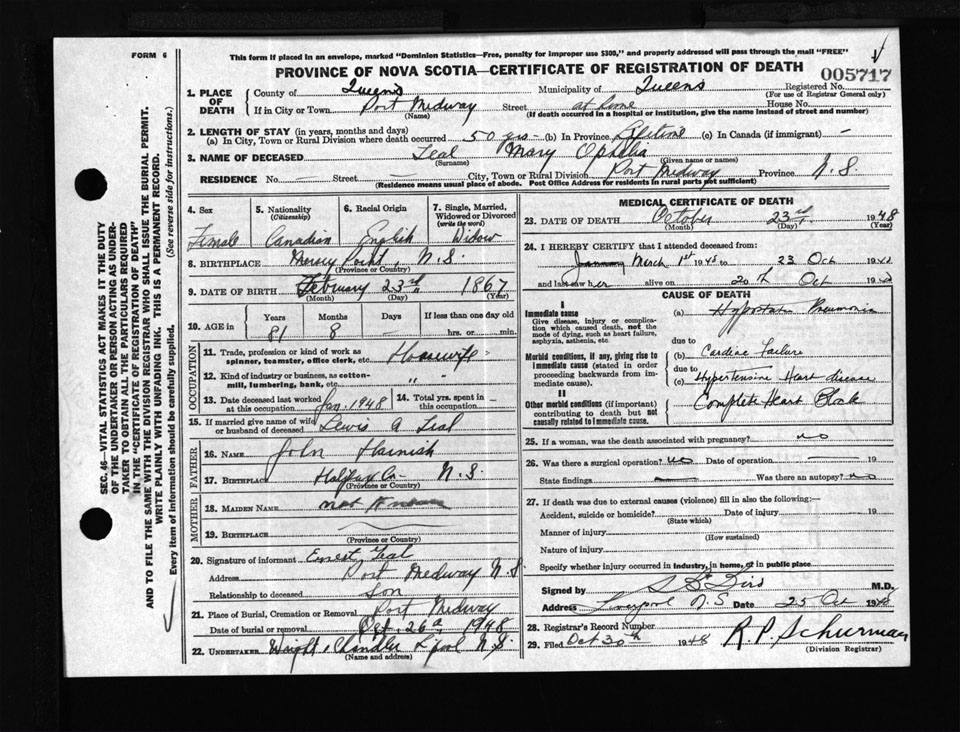 FORM 6
This form if placed in an envelope, marked "Dominion Statistics—Free, penalty for improper use $300," and properly addressed will pass through the mail "FREE"
PROVINCE OF NOVA SCOTIA—CERTIFICATE OF REGISTRATION OF DEATH
005717
1. PLACE OF DEATH
County of Queens Municipality of Queens Registered No.
(For use of Registrar General only)
If in City or Town Port Medway Street at home House No.
(Name) (If death occurred in a hospital or institution, give the name instead of street and number)
2. LENGTH OF STAY (in years, months and days)
(a) In City, Town or Rural Division where death occurred 50 yrs - (b) In Province Lifetime (c) In Canada (if immigrant) -
3. NAME OF DECEASED Teal Mary Ophelia
(Surname) (Given name or names)
RESIDENCE No. — Street — City, Town or Rural Division Port Medway Province N.S.
(Residence means usual place of abode. Post Office Address for residents in rural parts not sufficient)
4. Sex
Female
5. Nationality
(Citizenship)
Canadian
6. Racial Origin
English
7. Single, Married, Widowed or Divorced
(write the word)
Widow
8. BIRTHPLACE Mersey Point, N.S.
(Province or Country)
9. DATE OF BIRTH February 23rd 1867
(Month) (Day) (Year)
10. AGE in
Years Months Days If less than one day old
81 8 hrs. or min.
OCCUPATION
11. Trade, profession or kind of work as spinner, teamster, office clerk, etc. Housewife
12. Kind of industry or business, as cotton-mill, lumbering, bank, etc. " "
13. Date deceased last worked at this occupation Jan. 1948 14. Total yrs. spent in this occupation -
15. If married give name of wife or husband of deceased Lewis A Teal
FATHER
16. NAME John Hainish
17. BIRTHPLACE Halifax Co. N.S.
MOTHER
18. MAIDEN NAME not Known
19. BIRTHPLACE
(Province or Country)
20. Signature of informant Ernest Teal
Address Port Medway N.S.
Relationship to deceased Son
21. Place of Burial, Cremation or Removal Port Medway
Date of burial or removal Oct. 26th, 1948
22. UNDERTAKER Wright, Chandler L'pool N.S.
(Name and address)
MEDICAL CERTIFICATE OF DEATH
23. DATE OF DEATH October 23rd 1948
(Month) (Day) (Year)
24. I HEREBY CERTIFY that I attended deceased from:
January March 1st 1948 to 23 Oct 1948
and last saw her alive on 20th Oct 1948
CAUSE OF DEATH
I
Immediate cause
Give disease, injury or complication which caused death, not the mode of dying, such as heart failure, asphyxia, asthenia, etc.
(a) Hypostatic Pneumonia
due to
Morbid conditions, if any, giving rise to immediate cause (stated in order proceeding backwards from immediate cause).
(b) Cardiac Failure
due to
(c) Hypertensive Heart disease
II
Other morbid conditions (if important) contributing to death but not causally related to immediate cause.
Complete Heart Block
25. If a woman, was the death associated with pregnancy? no
26. Was there a surgical operation? no Date of operation — 19
State findings — Was there an autopsy? no
27. If death was due to external causes (violence) fill in also the following:—
Accident, suicide or homicide? Date of injury 19
(State which)
Manner of injury
(How sustained)
Nature of injury
Specify whether injury occurred in industry, in home, or in public place
Signed by M.D.
Address Liverpool N.S Date 25 Oct 1948
28. Registrar's Record Number
29. Filed Oct 30th 1948 R. P. Schurman
(Division Registrar)
SEC. 46—VITAL STATISTICS ACT MAKES IT THE DUTY
OF THE UNDERTAKER OR PERSON ACTING AS UNDER-
TAKER TO OBTAIN ALL THE PARTICULARS REQUIRED
IN THE "CERTIFICATE OF REGISTRATION OF DEATH"
AND TO FILE THE SAME WITH THE DIVISION REGISTRAR WHO SHALL ISSUE THE BURIAL PERMIT.
WRITE PLAINLY WITH UNFADING INK. THIS IS A PERMANENT RECORD.
Every item of information should be carefully supplied. (See reverse side for instructions.)